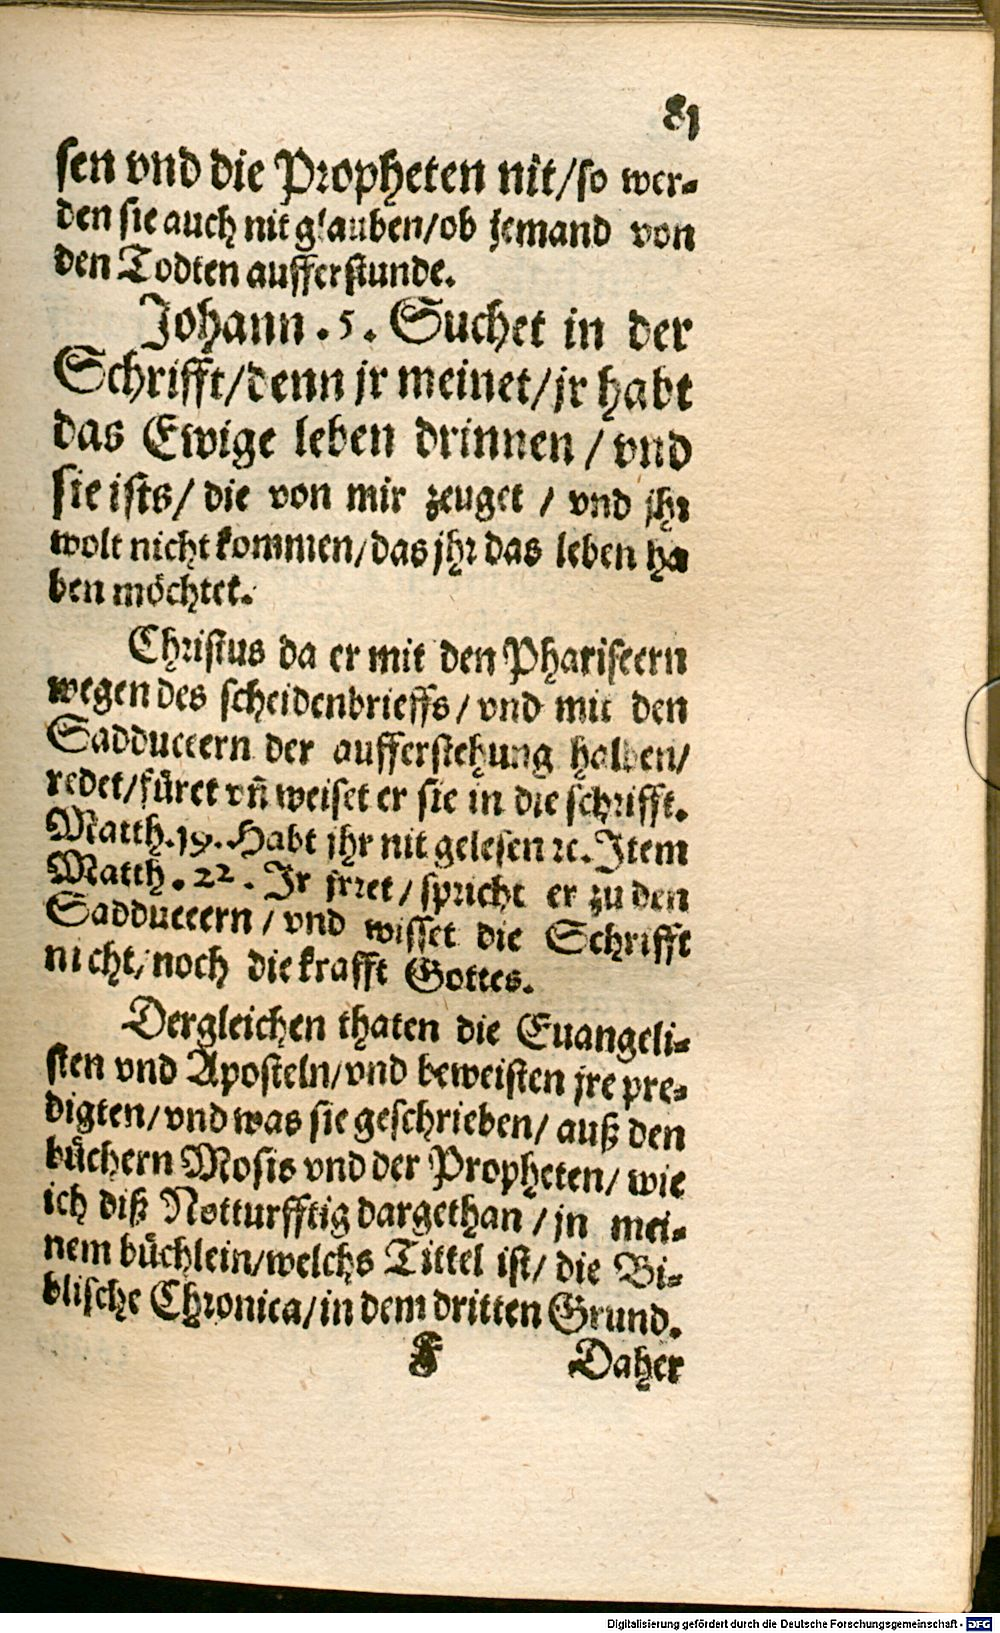 81
sen vnd die Propheten nit/so wer-
den sie auch nit glauben/ob jemand von
den Todten aufferstunde.
Johann .5. Suchet in der
Schrifft/denn jr meinet/jr habt
das Ewige leben drinnen / vnd
sie ists/ die von mir zeuget / vnd jhr
wolt nicht kommen/das jhr das leben ha
ben möchtet.
Christus da er mit den Phariseern
wegen des scheidenbrieffs / vnd mit den
Sadduceern der aufferstehung halben/
redet/füret vñ weiset er sie in die schrifft.
Matth.19. Habt jhr nit gelesen ꝛc. Item
Matth . 22 . Ir jrret / spricht er zu den
Sadduceern / vnd wisset die Schrifft
nicht/noch die krafft Gottes.
Dergleichen thaten die Euangeli-
sten vnd Aposteln/vnd beweisten jre pre-
digten/vnd was sie geschrieben/ auß den
büchern Mosis vnd der Propheten/ wie
ich diß Notturfftig dargethan / jn mei-
nem büchlein/welchs Tittel ist/ die Bi-
blische Chronica/in dem dritten Grund.
F Daher
Digitalisierung gefördert durch die Deutsche Forschungsgemeinschaft - DFG